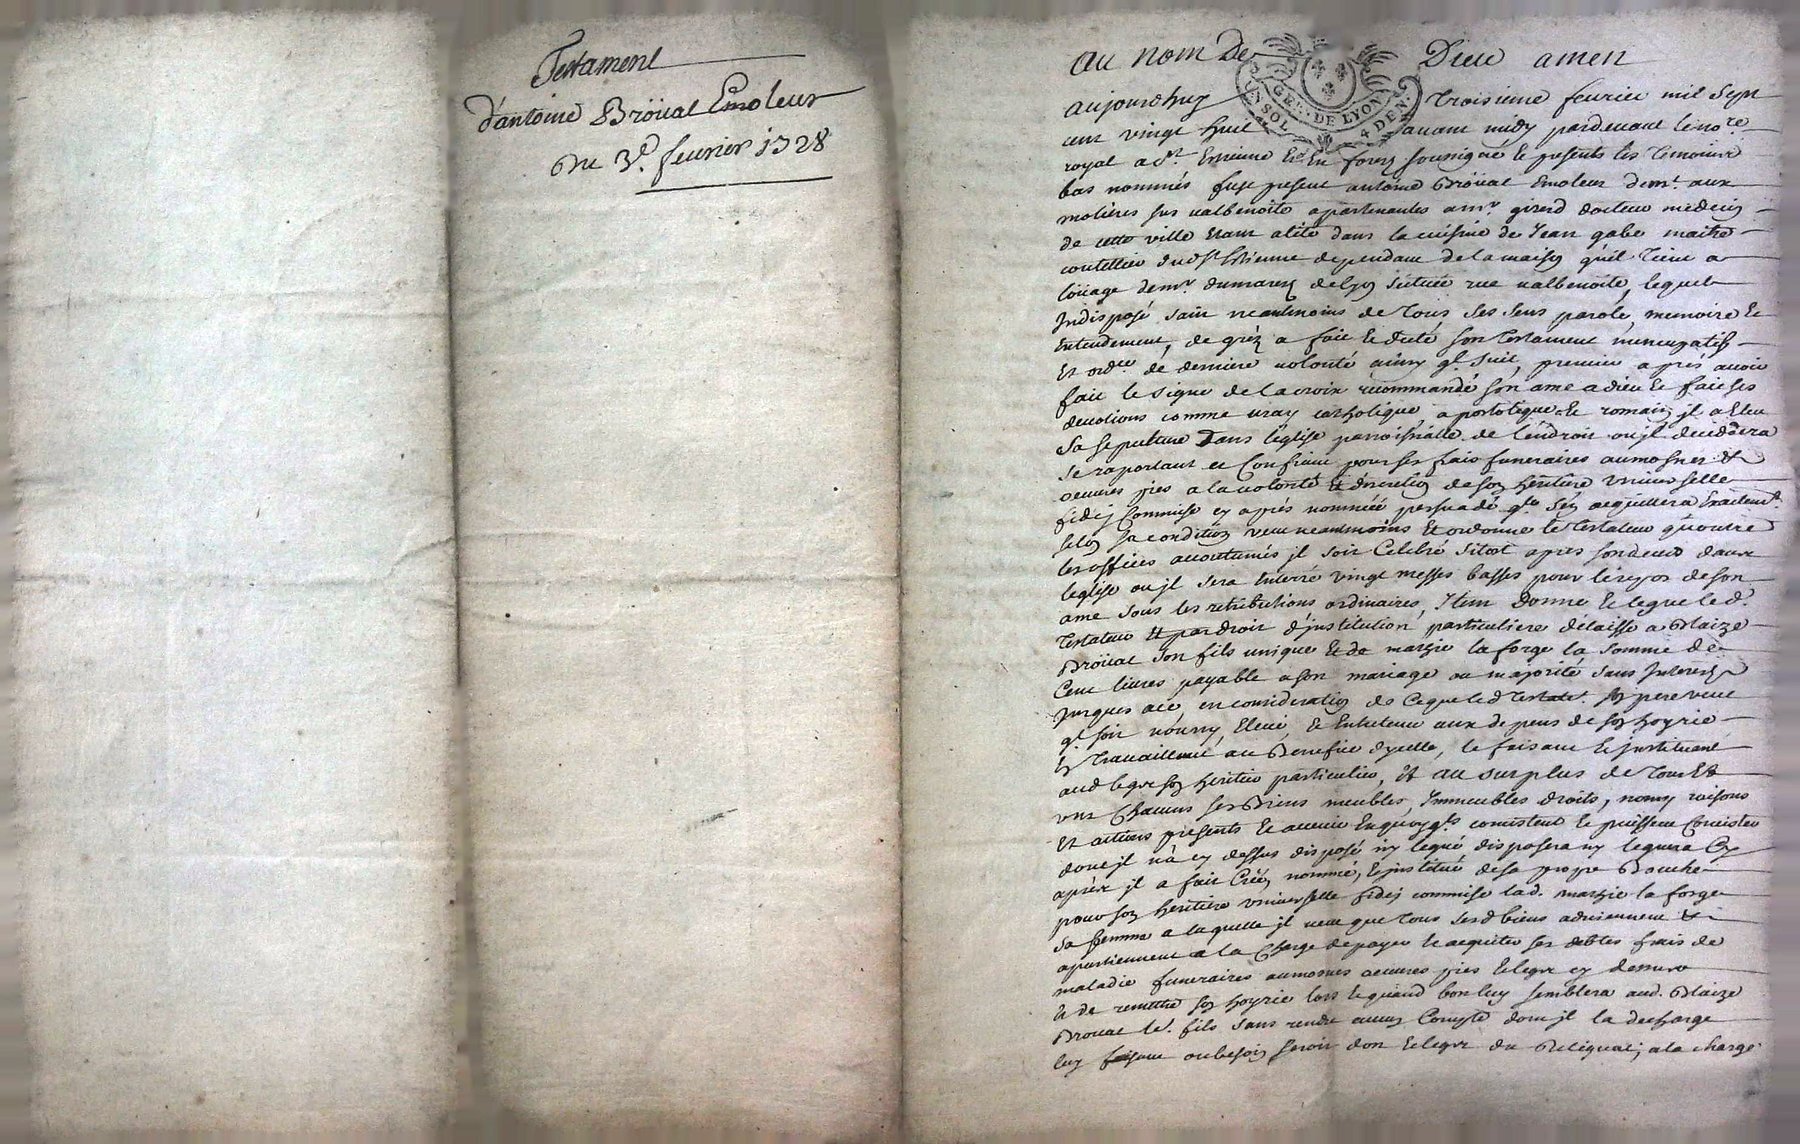 Testament
d'antoine Bröüat Emoleur
Du 3e. feurier 1728
au nom De Dieu amen
GEN. DE LYON
UN SOL 4 DEN.
aujourdhuy troisieme feurier mil sept
cent vingt huit auant midy pardeuant le nore.
royal a St. Etienne en forez soussigné et presents les temoins
bas nommés fust present antoine Bröüat Emoleur demt. aux
molieres sus valbenoite apartenantes a mr. girerd docteur medecin
de cette ville etant alité dans la cuisine de Jean gabe maitre
coutellier dud St Etienne dependant de la maison quil tient a
loüage de mr. dumarez de lyon scituée rue valbenoite, lequel
Indisposé sain neantmoins de tous ses sens parole, memoire et
Entendement, de gréz a fait et dicté son testament nuncupatif
Et ordre. de derniere volonté ainsy ql. suit, premier aprés auoir
fait le signe de la croix recommandé son ame a dieu et fait ses
deuotions comme vray catholique apostolique et romain jl a Eleu
sa sepulture Dans léglise parroissialle de léndroit ou jl decedera
se raportant et Confiant pour ses frais funeraires aumosnes &
oeuures pies a la volonté et discretion de son heritiere vniuerselle
fidej Commise cy aprés nommée persuadé qle sén acquittera Exactemt.
selon sa condition veut neantmoins Et ordonne le testateur quoutre
les offices accoutumés jl soit Celebré sitost aprés son decéd dans
léglise ou jl sera Enterré vingt messes basses pour le repos de son
ame sous les retributions ordinaires, Item donne et legue led.
testateur Et par droit djnstitution particuliere delaisse a Blaize
Bröüat son fils unique et de margie la forge la somme de
Cent liures payable a son mariage ou majorité sans Interest
jusques a ce en consideration de ce que led testatr. son pere veut
ql. soit nourry, Eleué, et Entretenu aux depens de son hoyrie
En trauaillant au Benefice dycelle, le faisant et jnstituant
aud legat son heritier particulier, Et au surplus de tous Et
vns Chacuns ses Biens meubles, Immeubles droits, noms raisons
Et actions presents et auenir En quoy qls. consistent et puissent Consister
dont jl nà cy dessus disposé ny legué disposera ny leguera Cy
aprés jl a fait Créé, nommé, et jnstitué de sa propre Bouche
pour son heritiere vniuerselle fidej commise lad. margie la forge
sa femme a laquelle jl veut que tous sesd biens aduiennent &
apartiennent a la Charge de payer et acquitter ses debtes frais de
maladie funeraires aumosnes oeuures pies et legat cy dessus
et de remettre son hoyrie lors et quand bon luy semblera aud. Blaize
Bröuat led. fils sans rendre aucun Compte dont jl la decharge
luy faisant au besoin don et legat du Reliquat; a la charge